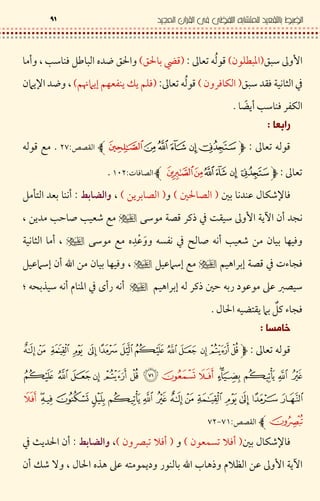 الضبط بالتقعيد للمتشابه اللفظي في القرآن المجيد ٩١
الأولى سبق(المبطلون) قولُه تعالى : (قضي بالحق) والحق ضده الباطل فناسب ، وأما
في الثانية فقد سبق( الكافرون ) قولُه تعالى: (فلم يك ينفعهم إيمانهم) ، وضد الإيمان
الكفر فناسب أيضًا .
رابعا :
قوله تعالى : ﴿ سَتَجِدُنِيٓ إِن شَآءَ ٱللَّهُ مِنَ ٱلصَّٰلِحِينَ ﴾ القصص:٢٧ . مع قوله
تعالى : ﴿ سَتَجِدُنِيٓ إِن شَآءَ ٱللَّهُ مِنَ ٱلصَّٰبِرِينَ ﴾ الصافات:١٠٢ .
فالإشكال عندنا بين ( الصالحين ) و( الصابرين ) ، والضابط : أننا بعد التأمل
نجد أن الآية الأولى سيقت في ذكر قصة موسى عليه السلام مع شعيب صاحب مدين ،
وفيها بيان من شعيب أنه صالح في نفسه ووَعْدِه مع موسى عليه السلام ، أما الثانية
فجاءت في قصة إبراهيم عليه السلام مع إسماعيل عليه السلام ، وفيها بيان من الله أن إسماعيل
سيصبر على موعود ربه حين ذكر له إبراهيم عليه السلام أنه رأى في المنام أنه سيذبحه ؛
فجاء كلٌ بما يقتضيه الحال .
خامسا :
قوله تعالى : ﴿ قُلْ أَرَءَيْتُمْ إِن جَعَلَ ٱللَّهُ عَلَيْكُمُ ٱلَّيْلَ سَرْمَدًا إِلَىٰ يَوْمِ ٱلْقِيَٰمَةِ مَنْ إِلَٰهٌ
غَيْرُ ٱللَّهِ يَأْتِيكُم بِضِيَآءٍ أَفَلَا تَسْمَعُونَ ﴿٧١﴾ قُلْ أَرَءَيْتُمْ إِن جَعَلَ ٱللَّهُ عَلَيْكُمُ
ٱلنَّهَارَ سَرْمَدًا إِلَىٰ يَوْمِ ٱلْقِيَٰمَةِ مَنْ إِلَٰهٌ غَيْرُ ٱللَّهِ يَأْتِيكُم بِلَيْلٍ تَسْكُنُونَ فِيهِ أَفَلَا
تُبْصِرُونَ ﴾ القصص:٧١-٧٢
فالإشكال بين( أفلا تسمعون ) و ( أفلا تبصرون )، والضابط : أن الحديث في
الآية الأولى عن الظلام وذهاب الله بالنور وديمومته على هذه الحال ، ولا شك أن